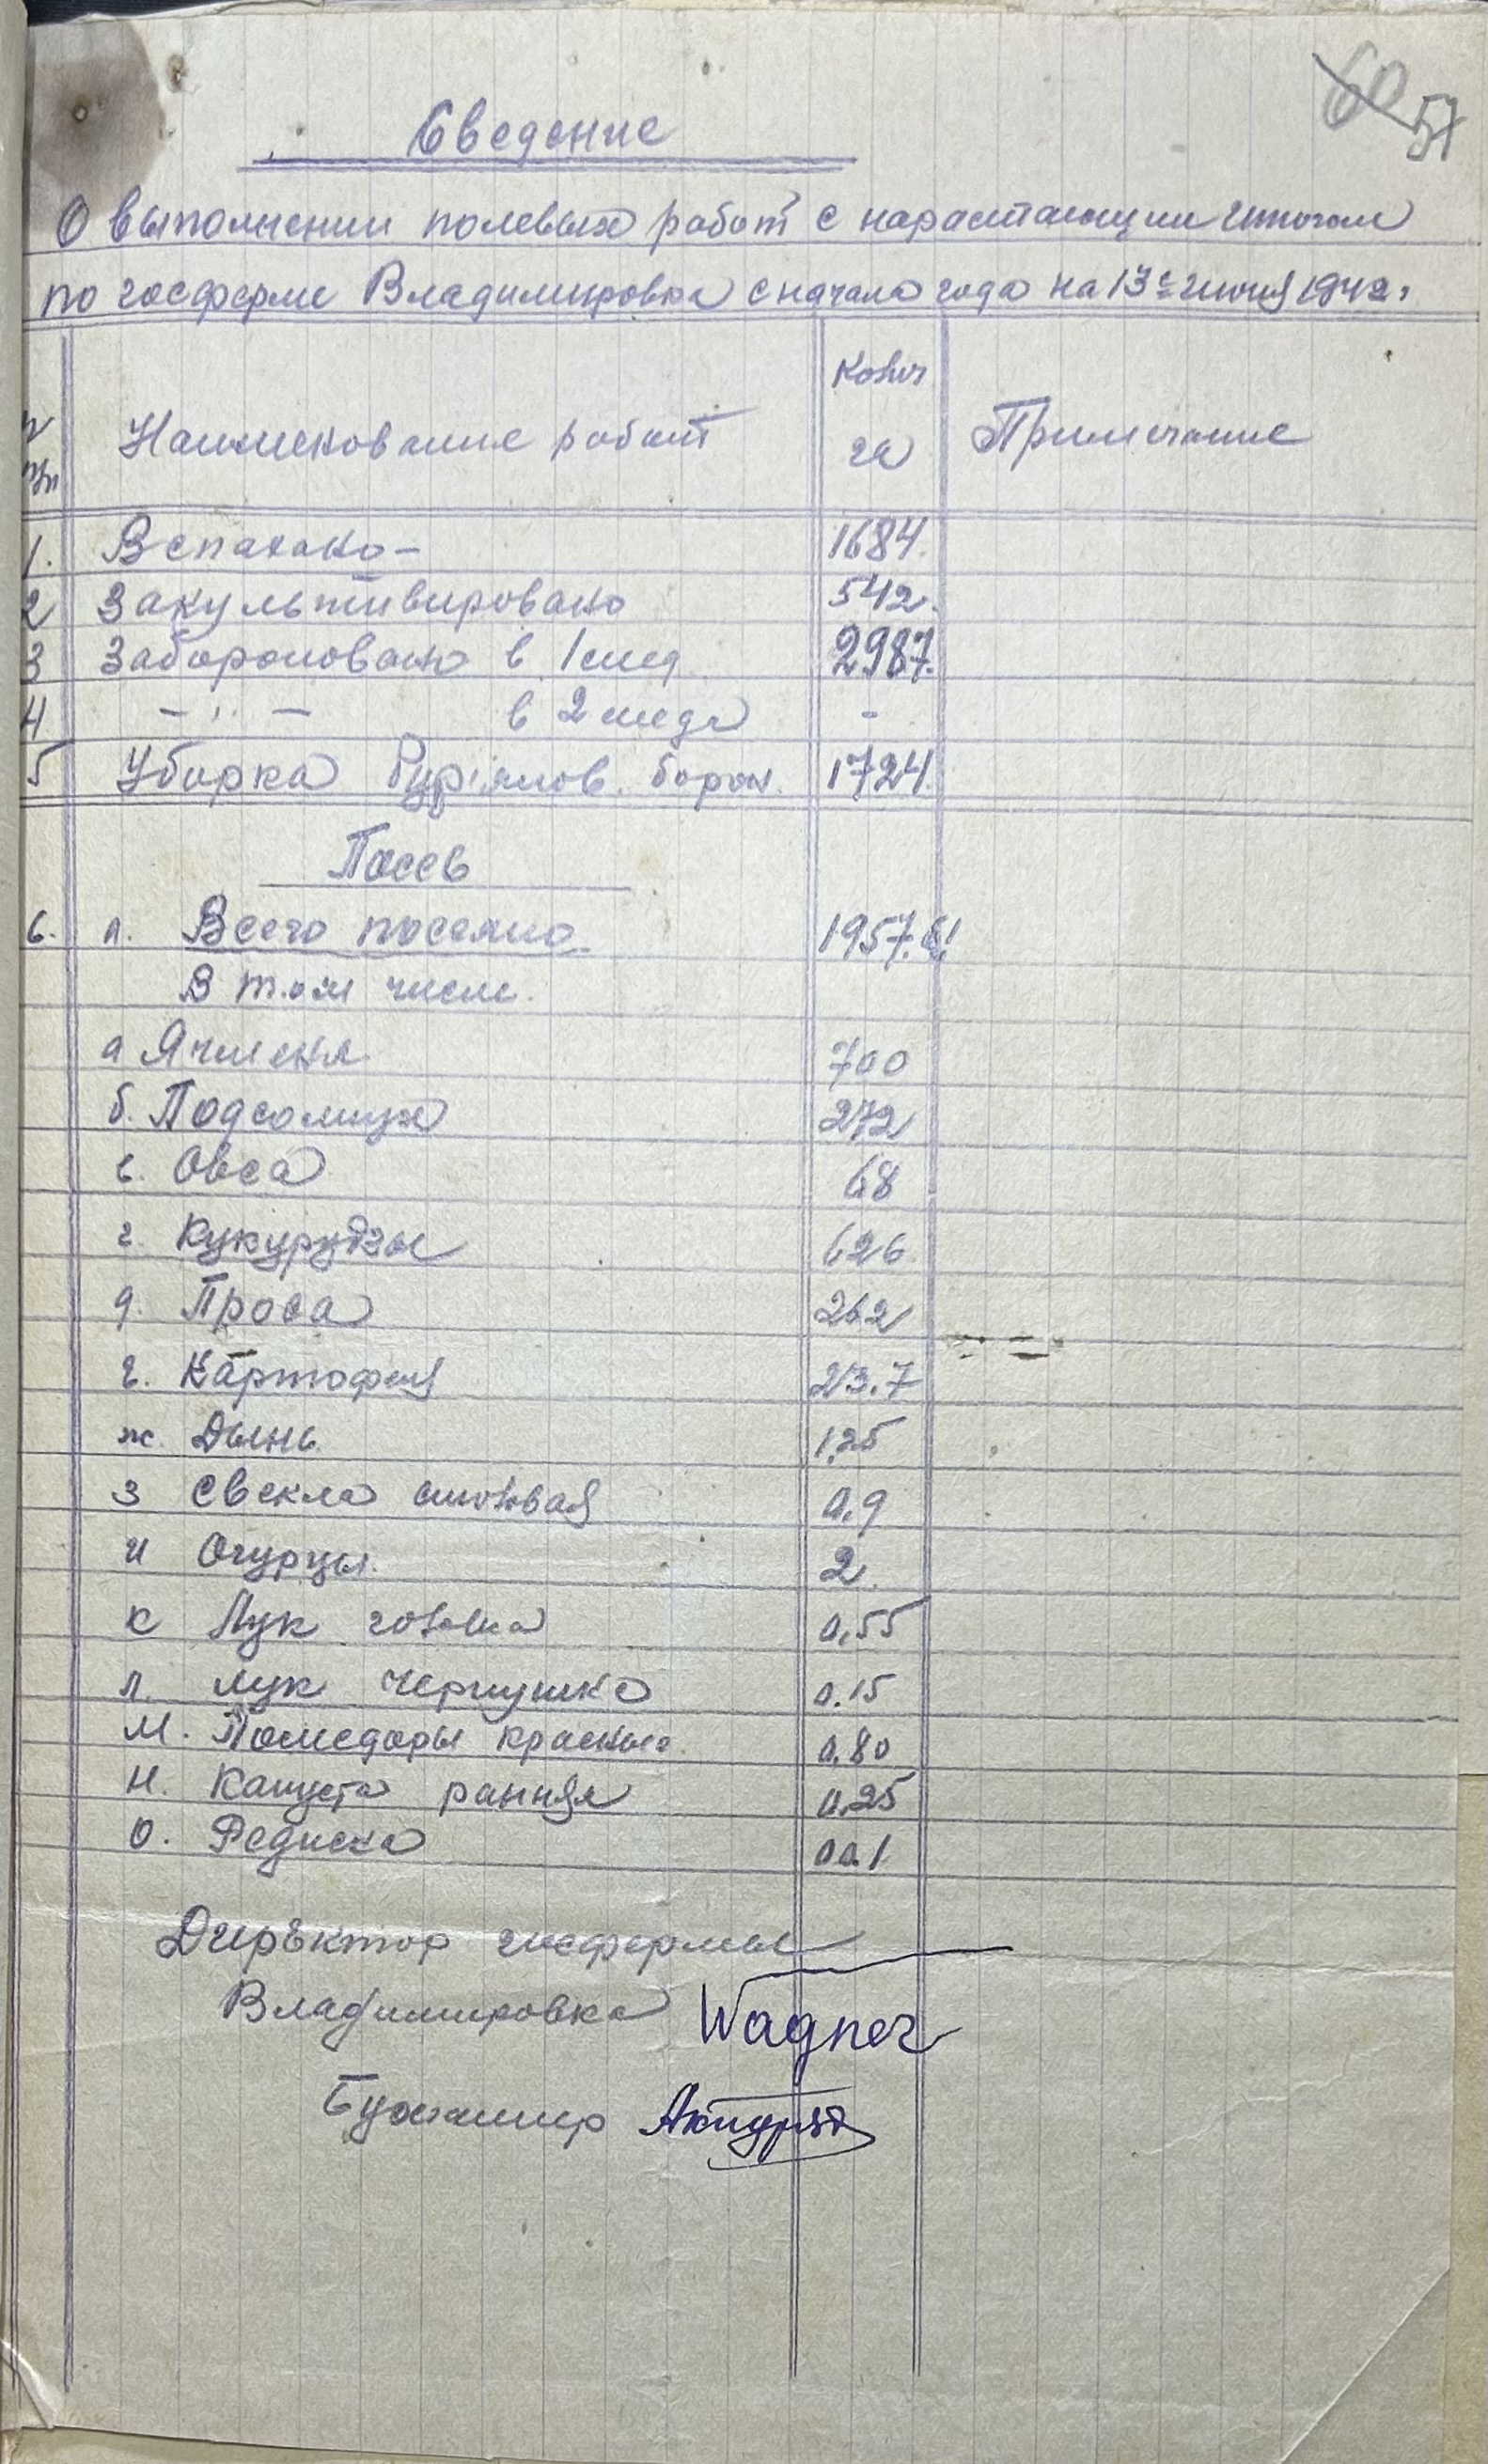 60 57
Сведение
О выполнении полевых работ с нарастающим итогом
по госферме Владимировка с начала года на 13е июня 1942г
N п/п Наименование работ Колич га Примечание
1. Вспахано - 1684.
2 Закультивировано 542.
3 Забороновано в 1 след 2987.
4 - " - в 2 следа -
5 Уборка бурьянов. борон. 1724.
Посев
6. а. Всего посеяно 1957.61
В том числе
а Ячменя 700
б. Подсолнух 272
в. Овса 68
г. Кукурудзы 626
д. Проса 262
е. Картофеля 23.7
ж. Дынь 1,25
з Свекла столовая 0.9
и Огурцы. 2.
к Лук головка 0,55
л. лук чернушка 0.15
м. Помедоры красные 0.80
н. Капуста ранняя 0.25
о. Редиска 00.1
Директор госфермы
Владимировка Wagner
Бухгалтер